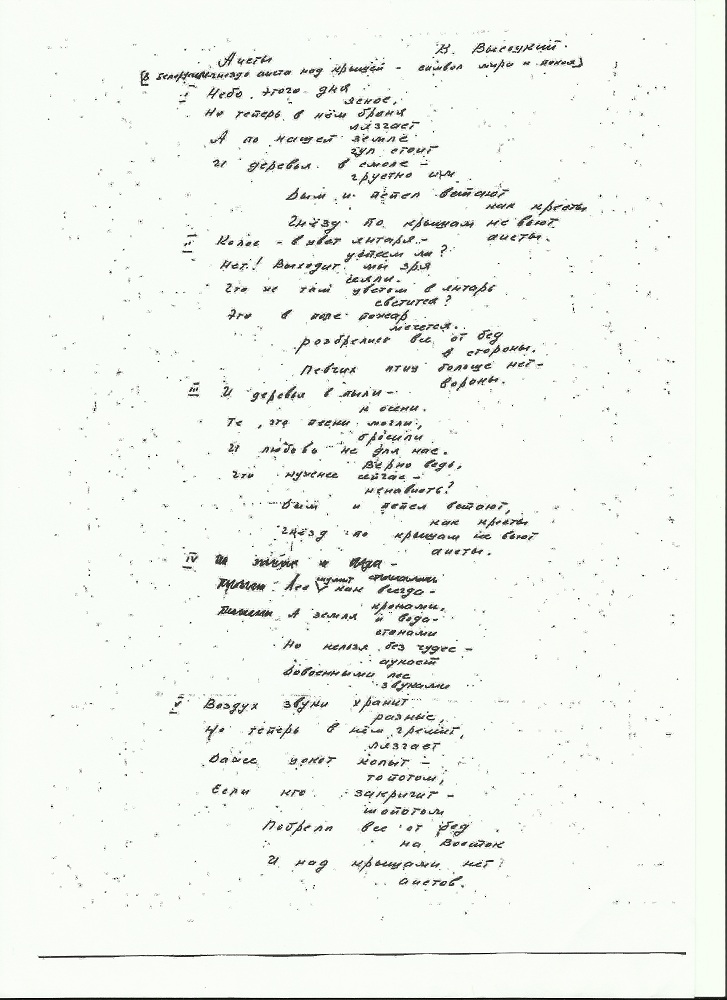 Аисты
В. Высоцкий.
[в Белоруссии гнездо аиста над крышей – символ мира и покоя]
I Небо этого дня
ясное,
Но теперь в нём броня
лязгает
А по нашей земле
гул стоит
И деревья в смоле –
грустно им.
Дым и пепел встают
как кресты
Гнёзд по крышам не вьют
аисты.
II Колос – в цвет янтаря –
успеем ли?
Нет! Выходит мы зря
сеяли.
Что же там цветом в янтарь
светится?
Это в поле пожар
мечется..
Разбрелись все от бед
в стороны.
Певчих птиц больше нет –
вороны.
III И деревья в пыли –
к осени.
Те, что песни могли,
бросили
И любовь не для нас.
Верно ведь,
Что нужнее сейчас –
ненависть?
Дым и пепел встают,
как кресты
Гнёзд по крышам не вьют
аисты.
IV
Лес шумит как всегда –
кронами,
А земля и вода –
стонами
Но нельзя без чудес –
аукает
Довоенными лес
звуками
V Воздух звуки хранит
разные,
Но теперь в нём гремит,
лязгает
Даже цокот копыт –
топотом,
Если кто закричит –
шопотом
Побрели все от бед
на Восток
И над крышами нет
аистов.